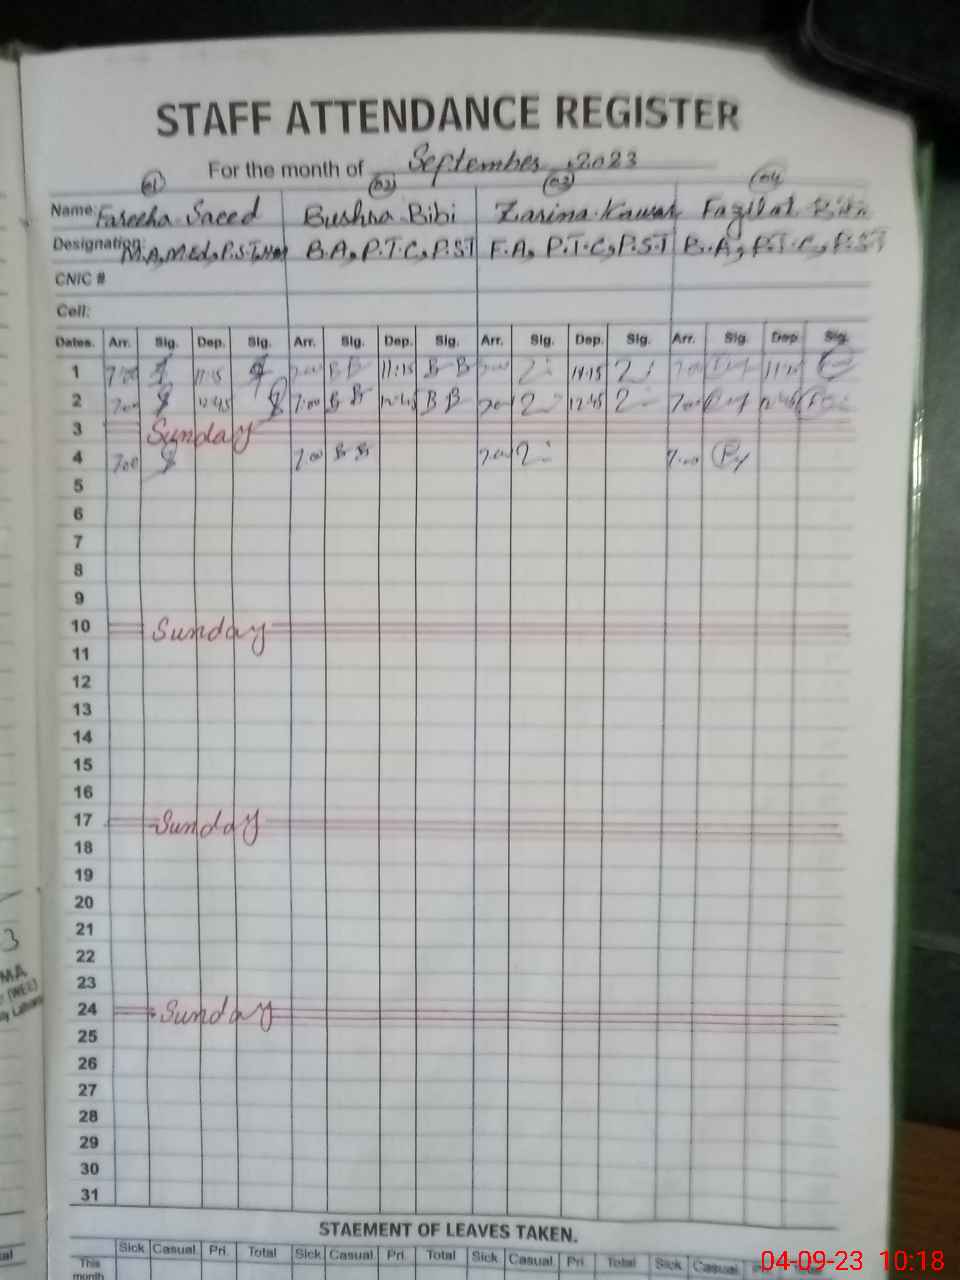 STAFF ATTENDANCE REGISTER
For the month of September, 2023
01 02 03 04
Name: Fareeha Saeed Bushra Bibi Zarina Kawar Fazilat Bibi
Designation: M.A, M.Ed, P.S.T, B.A, P.T.C, P.S.T F.A, P.T.C, P.S.T B.A, P.T.C, P.S.T
CNIC #
Cell:
Dates. Arr. Sig. Dep. Sig. Arr. Sig. Dep. Sig. Arr. Sig. Dep. Sig. Arr. Sig. Dep. Sig.
1 7:00 11:15 7:00 BB 11:15 BB 7:00 11:15 7:00 11:15
2 7:00 12:45 7:00 BB 12:45 BB 7:00 12:45 7:00 12:45
3 Sunday
4 7:00 7:00 BB 7:00 7:00
5
6
7
8
9
10 Sunday
11
12
13
14
15
16
17 Sunday
18
19
20
21
22
23
24 Sunday
25
26
27
28
29
30
31
STAEMENT OF LEAVES TAKEN.
Sick Casual Pri. Total Sick Casual Pri. Total Sick Casual Pri. Total Sick Casual
This
month
3
MA
(WEE)
04-09-23 10:18